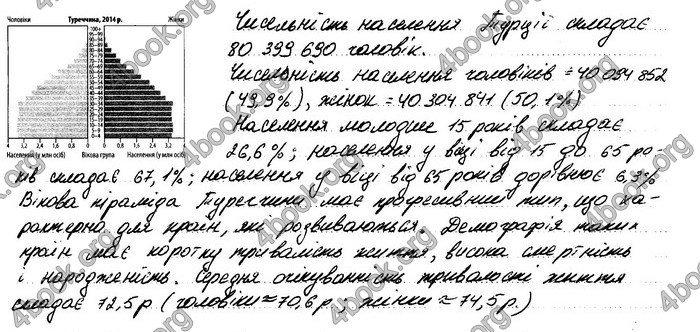 Чоловіки Туреччина, 2014 р. Жінки
100+
95–99
90–94
85–89
80–84
75–79
70–74
65–69
60–64
55–59
50–54
45–49
40–44
35–39
30–34
25–29
20–24
15–19
10–14
5–9
0–4
4 3,2 2,4 1,6 0,8 0 0 0,8 1,6 2,4 3,2 4
Населення (у млн осіб) Вікова група Населення (у млн осіб)
Чисельність населення Турції складає
80 399 690 чоловік.
Чисельність населення чоловіків = 40 094 852
(49,9%), жінок = 40 304 841 (50,1%)
Населення молодше 15 років складає
26,6%; населення у віці від 15 до 65 ро-
ків складає 67,1%; населення у віці від 65 років дорівнює 6,3%
Вікова піраміда Туреччини має прогресивний тип, що ха-
рактерно для країн, які розвиваються. Демографія таких
країн має коротку тривалість життя, висока смертність
і народженість. Середня очікуванність тривалості життя
складає 72,5 р (чоловіки ≈ 70,6 р; жінки ≈ 74,5 р.)
4book.org